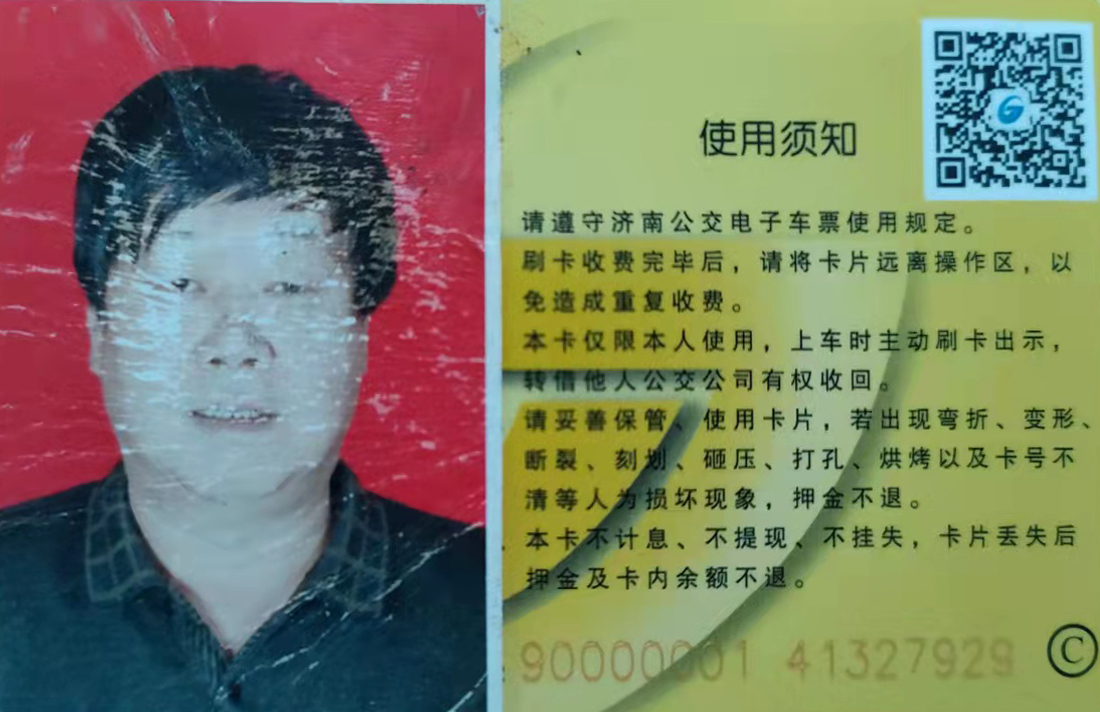 使用须知
请遵守济南公交电子车票使用规定。
刷卡收费完毕后，请将卡片远离操作区，以
免造成重复收费。
本卡仅限本人使用，上车时主动刷卡出示，
转借他人公交公司有权收回。
请妥善保管、使用卡片，若出现弯折、变形、
断裂、刻划、砸压、打孔、烘烤以及卡号不
清等人为损坏现象，押金不退。
本卡不计息、不提现、不挂失，卡片丢失后
押金及卡内余额不退。
90000001 41327929 ©